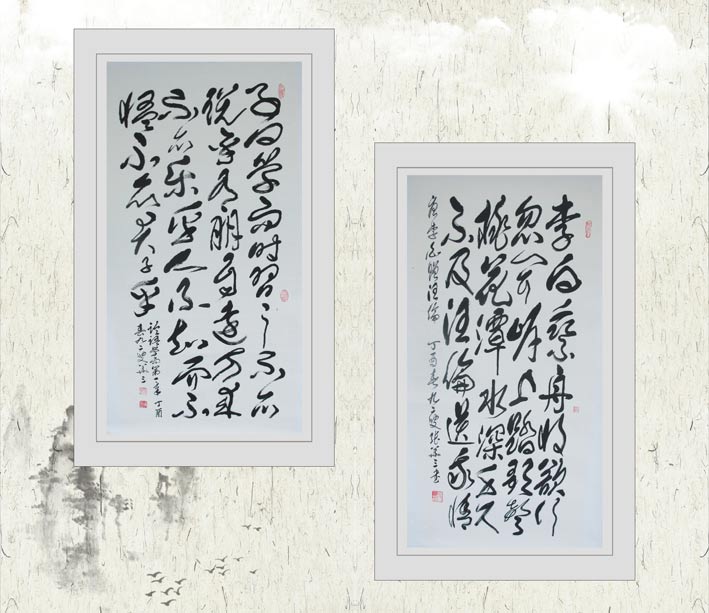 子曰学而时习之不亦
说乎有朋自远方来
不亦乐乎人不知而不
愠不亦君子乎
论语学而第一章 丁酉
春九二叟
李白乘舟将欲行
忽闻岸上踏歌声
桃花潭水深千尺
不及汪伦送我情
唐李白赠汪伦 丁酉春九二叟张华三书